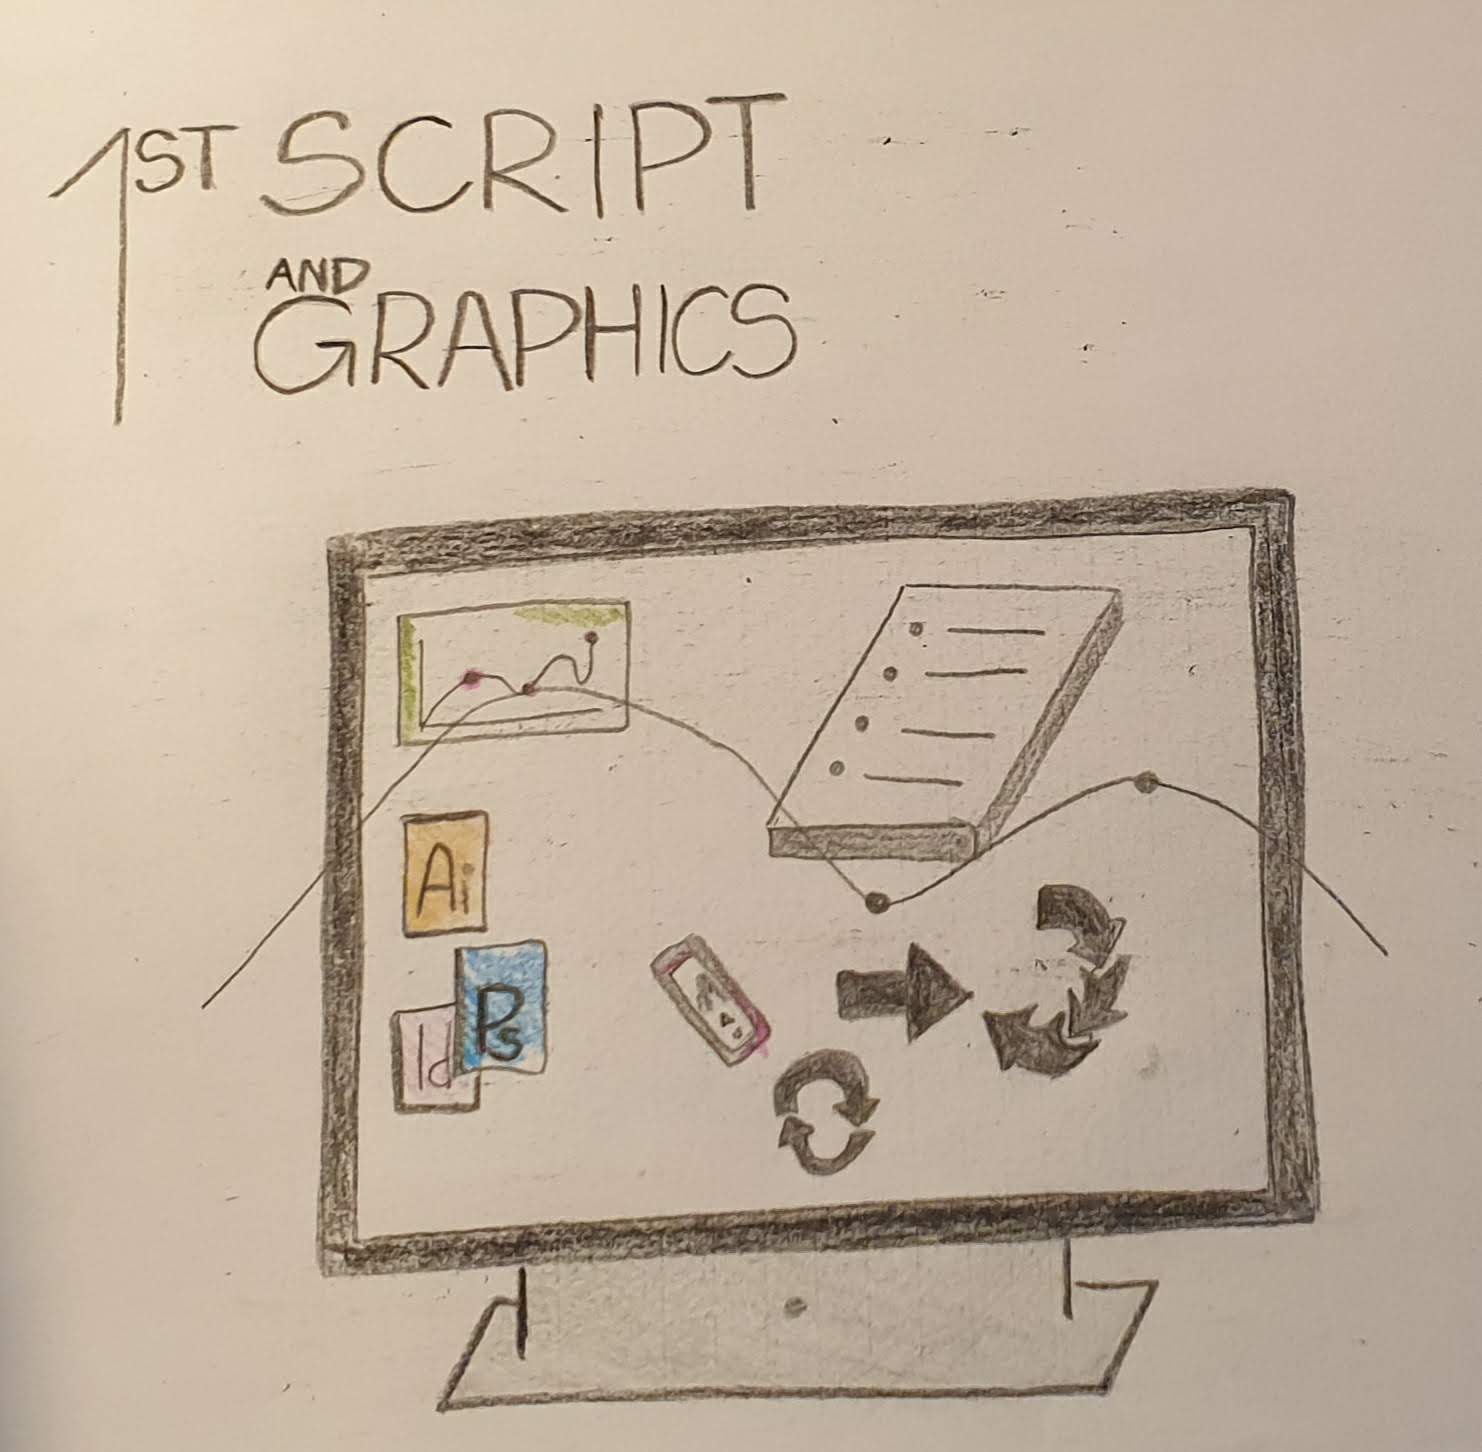 1ST SCRIPT
AND
GRAPHICS
Ai
Ps
Id